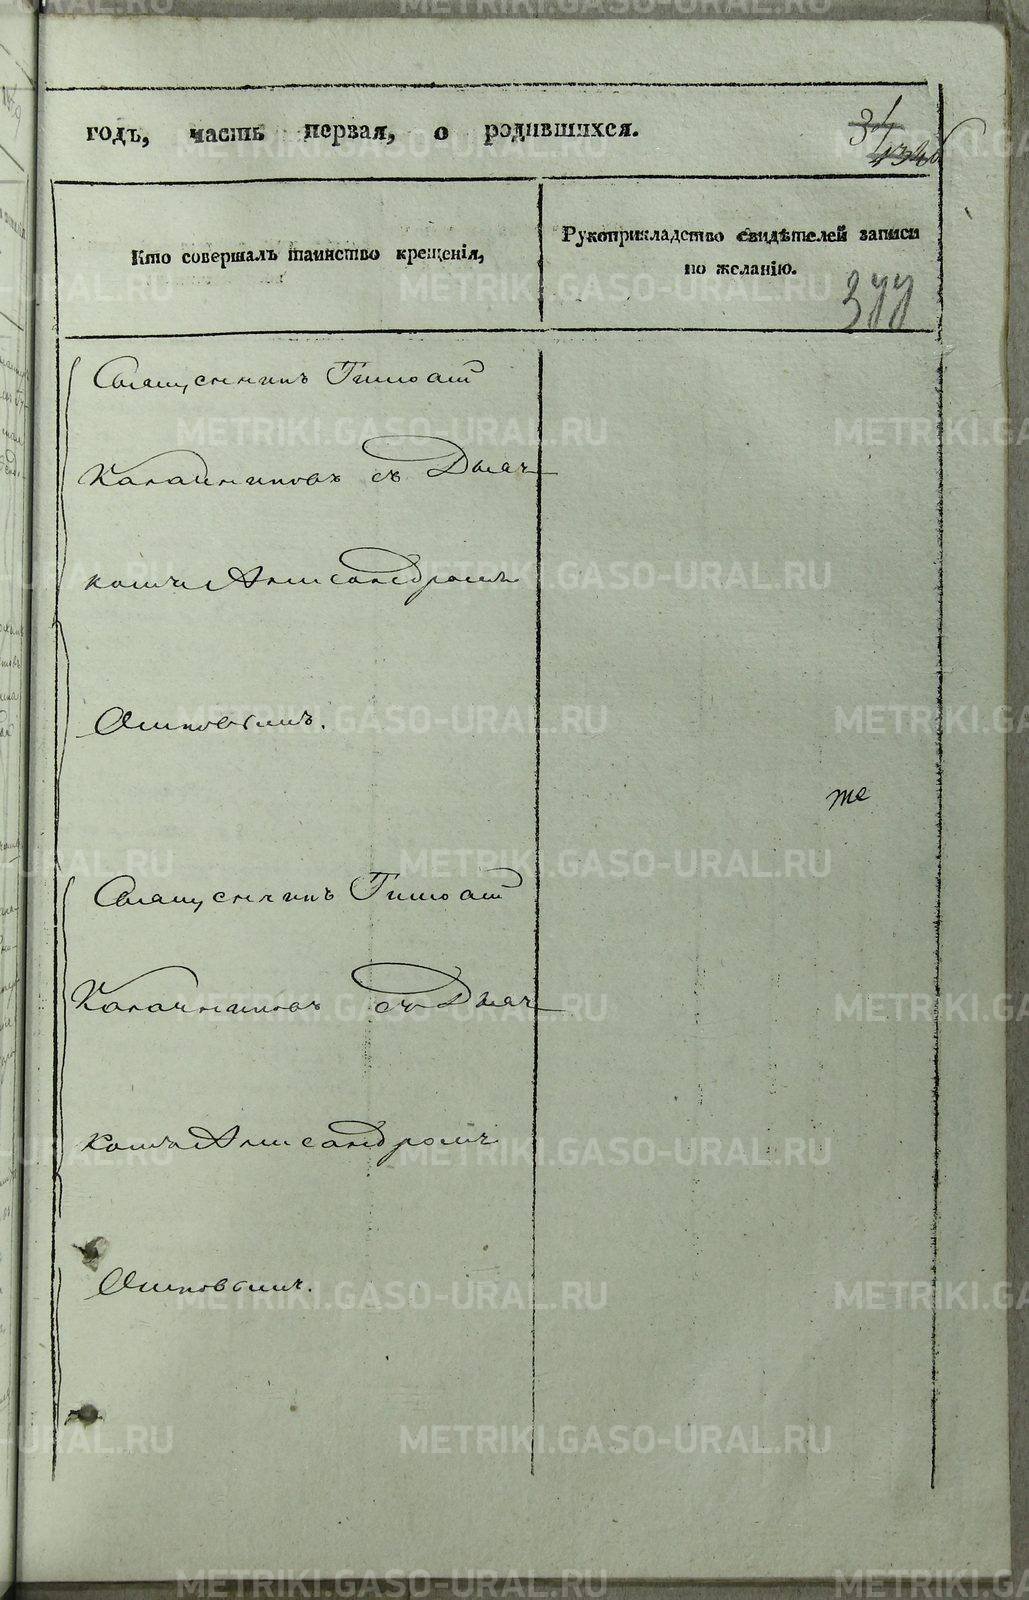 годъ, часть первая, о родившихся.
31
Кто совершалъ таинство крещенія,
Рукоприкладство свидѣтелей записи
по желанію.
377
Священникъ Тимоѳей
Калачниковъ съ Дьяч
комъ Александромъ
Ошковымъ.
те
Священникъ Тимоѳей
Калачниковъ съ Дьяч
комъ Александромъ
Ошковымъ.
METRIKI.GASO-URAL.RU